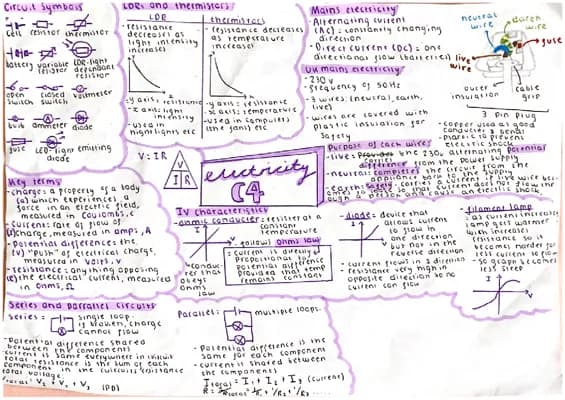 Circuit Symbols
cell
resistor
thermistor
battery
variable resistor
LDR-light dependant resistor
open switch
closed switch
voltmeter
bulb
ammeter
diode
fuse
LED-light emitting diode
LDRs and thermistors
LDR
- resistance decreases as light intensity increases
- y axis: resistance
- x axis: light intensity
- used in nightlights etc
thermistors
- resistance decreases as temperature increases
- y axis: resistance
- x axis: temperature
- used in computers
Mains electricity
- Alternating current
(AC) = constantly changing
direction
- Direct current (DC) = one
directional flow (batteries)
UK mains electricity
- 230 V
- frequency of 50Hz
- 3 wires: (neutral, earth,
live)
- wires are covered with
plastic insulation for
safety
neutral wire
earth wire
fuse
live wire
outer insulation
cable grip
3 pin plug
- copper used as good
conductor & bends
- plastic to prevent
electric shock
Purpose of each wire:
- live: carries the 230V alternating potential
difference from the power supply
- neutral: completes the circuit from the
- earth: safety
V = IR
V
I R
electricity
C4
Key terms
- charge: a property of a body
(Q) which experiences a
force in an electric field,
measured in coulombs, C
- current: rate of flow of
(I) charge, measured in amps, A
- Potential difference: the
(V) "push" of electrical charge,
measured in volts, V
- resistance: anything opposing
(R) the electric current, measured
in ohms, Ω
IV characteristics
- ohmic conductor: resistor at a
constant
temperature
(follow) ohms law
- conductor that obeys ohms law
= current is directly
proportional to
potential difference
provided that temp
remains constant
- diode: device that
allows current
to flow in
one direction
but not in the
reverse direction
- current flows in 1 direction
- resistance very high in
opposite direction so no
current can flow
filament lamp
- as current increases
lamp gets warmer
which increases
resistance so it
becomes harder for
less current to flow
- so graph becomes
less steep
Series and parallel circuits
Series =
single loop.
is broken, charge
cannot flow
- Potential difference shared
between the components
- current is same everywhere in circuit
- total resistance is the sum of each
component in the circuits resistance
- total voltage:
V total: V1 + V2 + V3 (PD)
Parallel:
multiple loops.
- Potential difference is the
same for each component
- current is shared between
the components
I total = I1 + I2 + I3 (current)